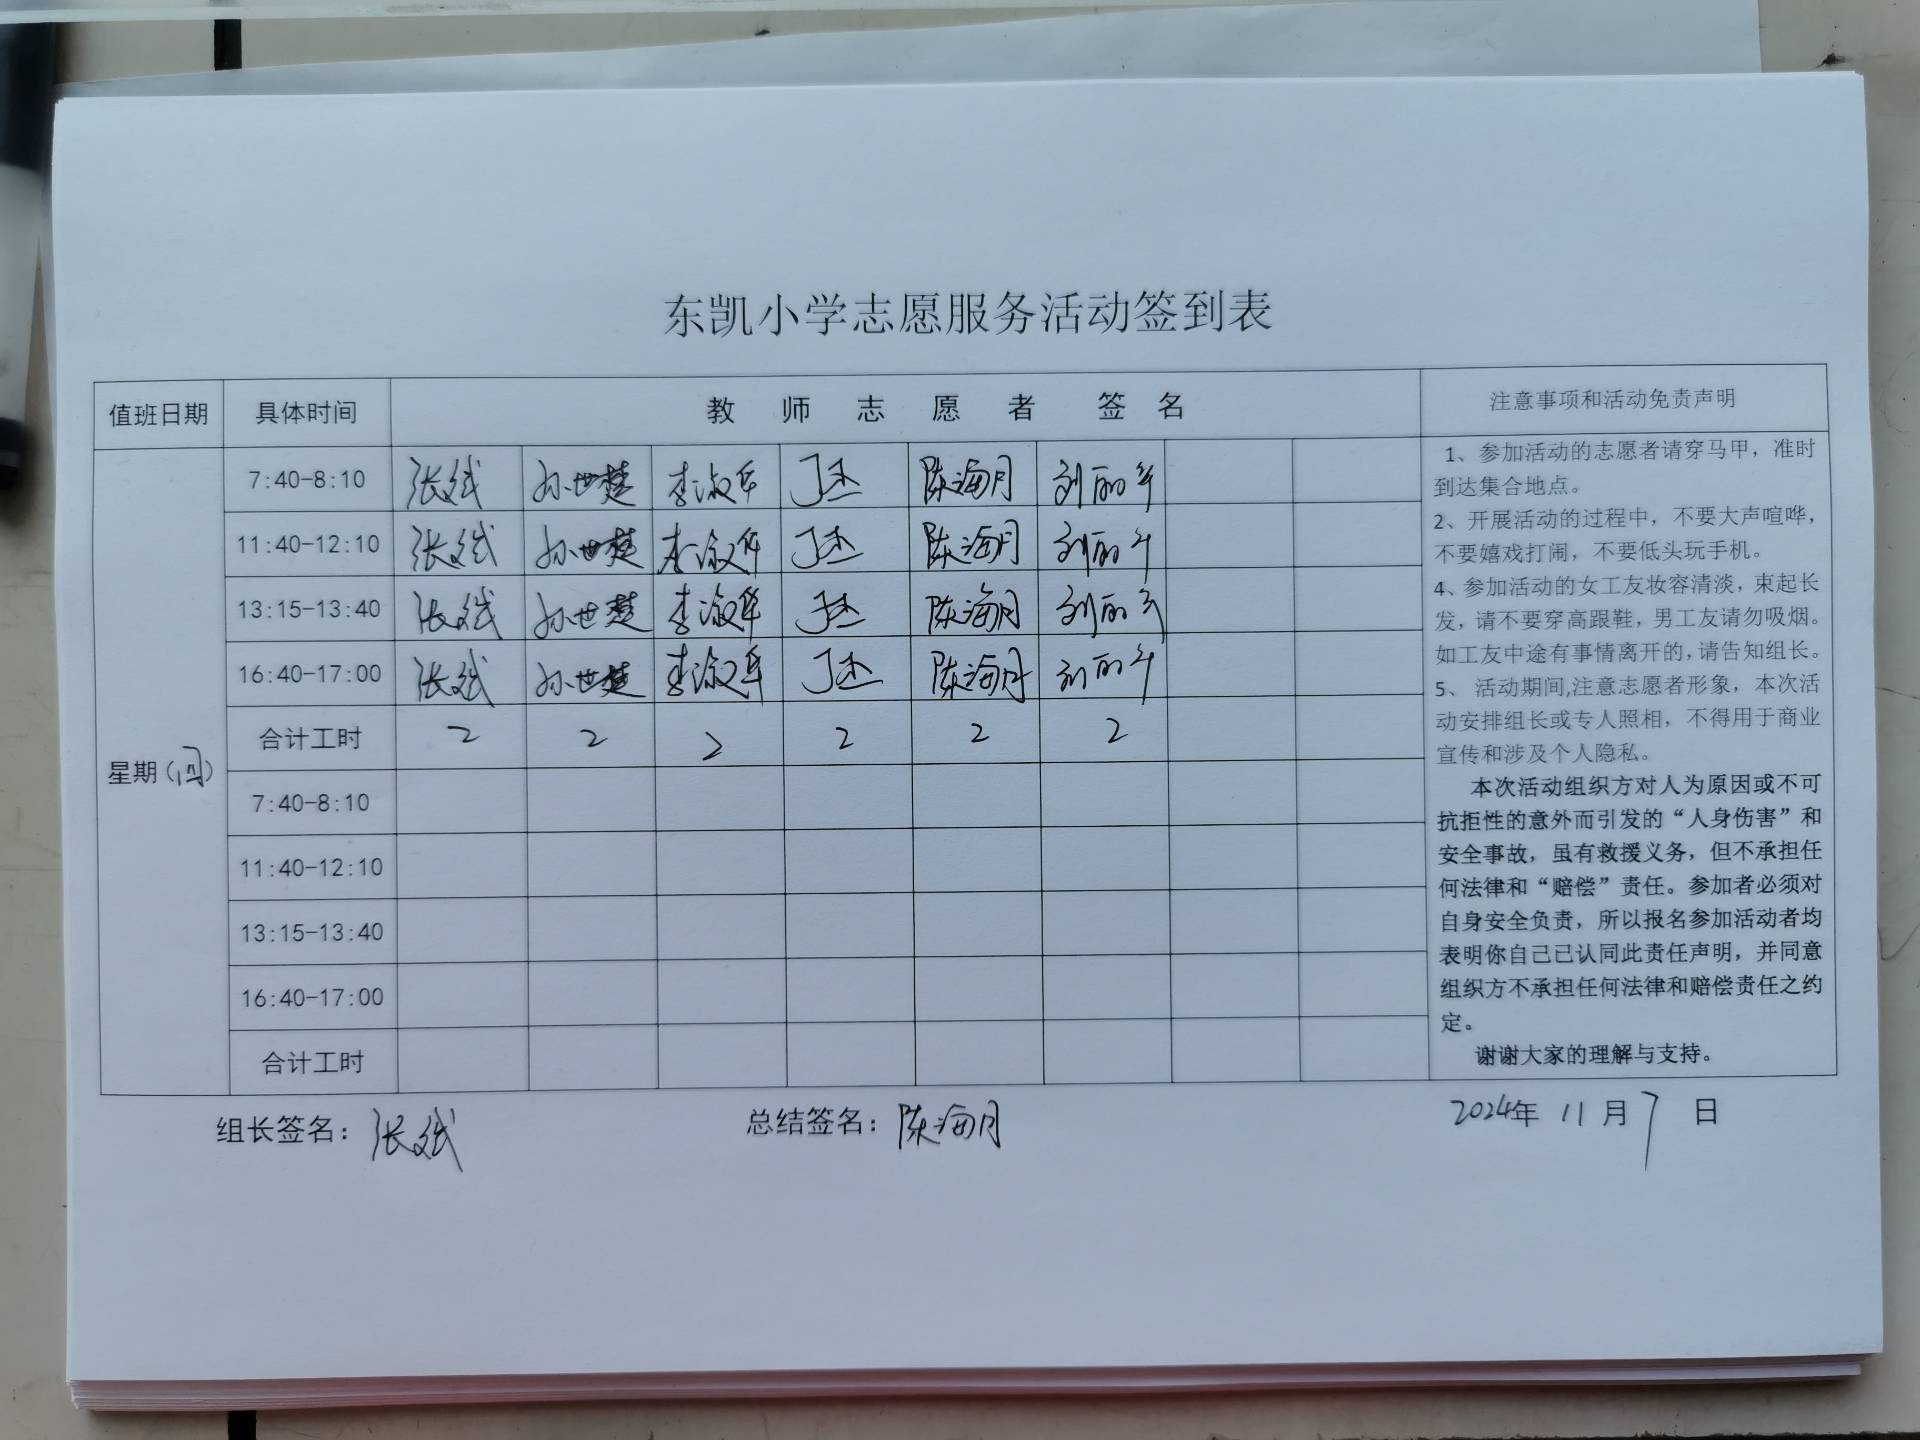 东凯小学志愿服务活动签到表
值班日期 具体时间 教师志愿者签名 注意事项和活动免责声明
星期(四)
7:40-8:10 张斌 孙世楚 李淑华 陈海月
11:40-12:10 张斌 孙世楚 李淑华 陈海月
13:15-13:40 张斌 孙世楚 李淑华 陈海月
16:40-17:00 张斌 孙世楚 李淑华 陈海月
合计工时 2 2 2 2 2 2
7:40-8:10
11:40-12:10
13:15-13:40
16:40-17:00
合计工时
1、参加活动的志愿者请穿马甲，准时
到达集合地点。
2、开展活动的过程中，不要大声喧哗，
不要嬉戏打闹，不要低头玩手机。
4、参加活动的女工友妆容清淡，束起长
发，请不要穿高跟鞋，男工友请勿吸烟。
如工友中途有事情离开的,请告知组长。
5、 活动期间,注意志愿者形象，本次活
动安排组长或专人照相，不得用于商业
宣传和涉及个人隐私。
本次活动组织方对人为原因或不可
抗拒性的意外而引发的“人身伤害”和
安全事故，虽有救援义务，但不承担任
何法律和“赔偿”责任。参加者必须对
自身安全负责，所以报名参加活动者均
表明你自己已认同此责任声明，并同意
组织方不承担任何法律和赔偿责任之约
定。
谢谢大家的理解与支持。
组长签名：张斌 总结签名：陈海月 2024年 11月7日